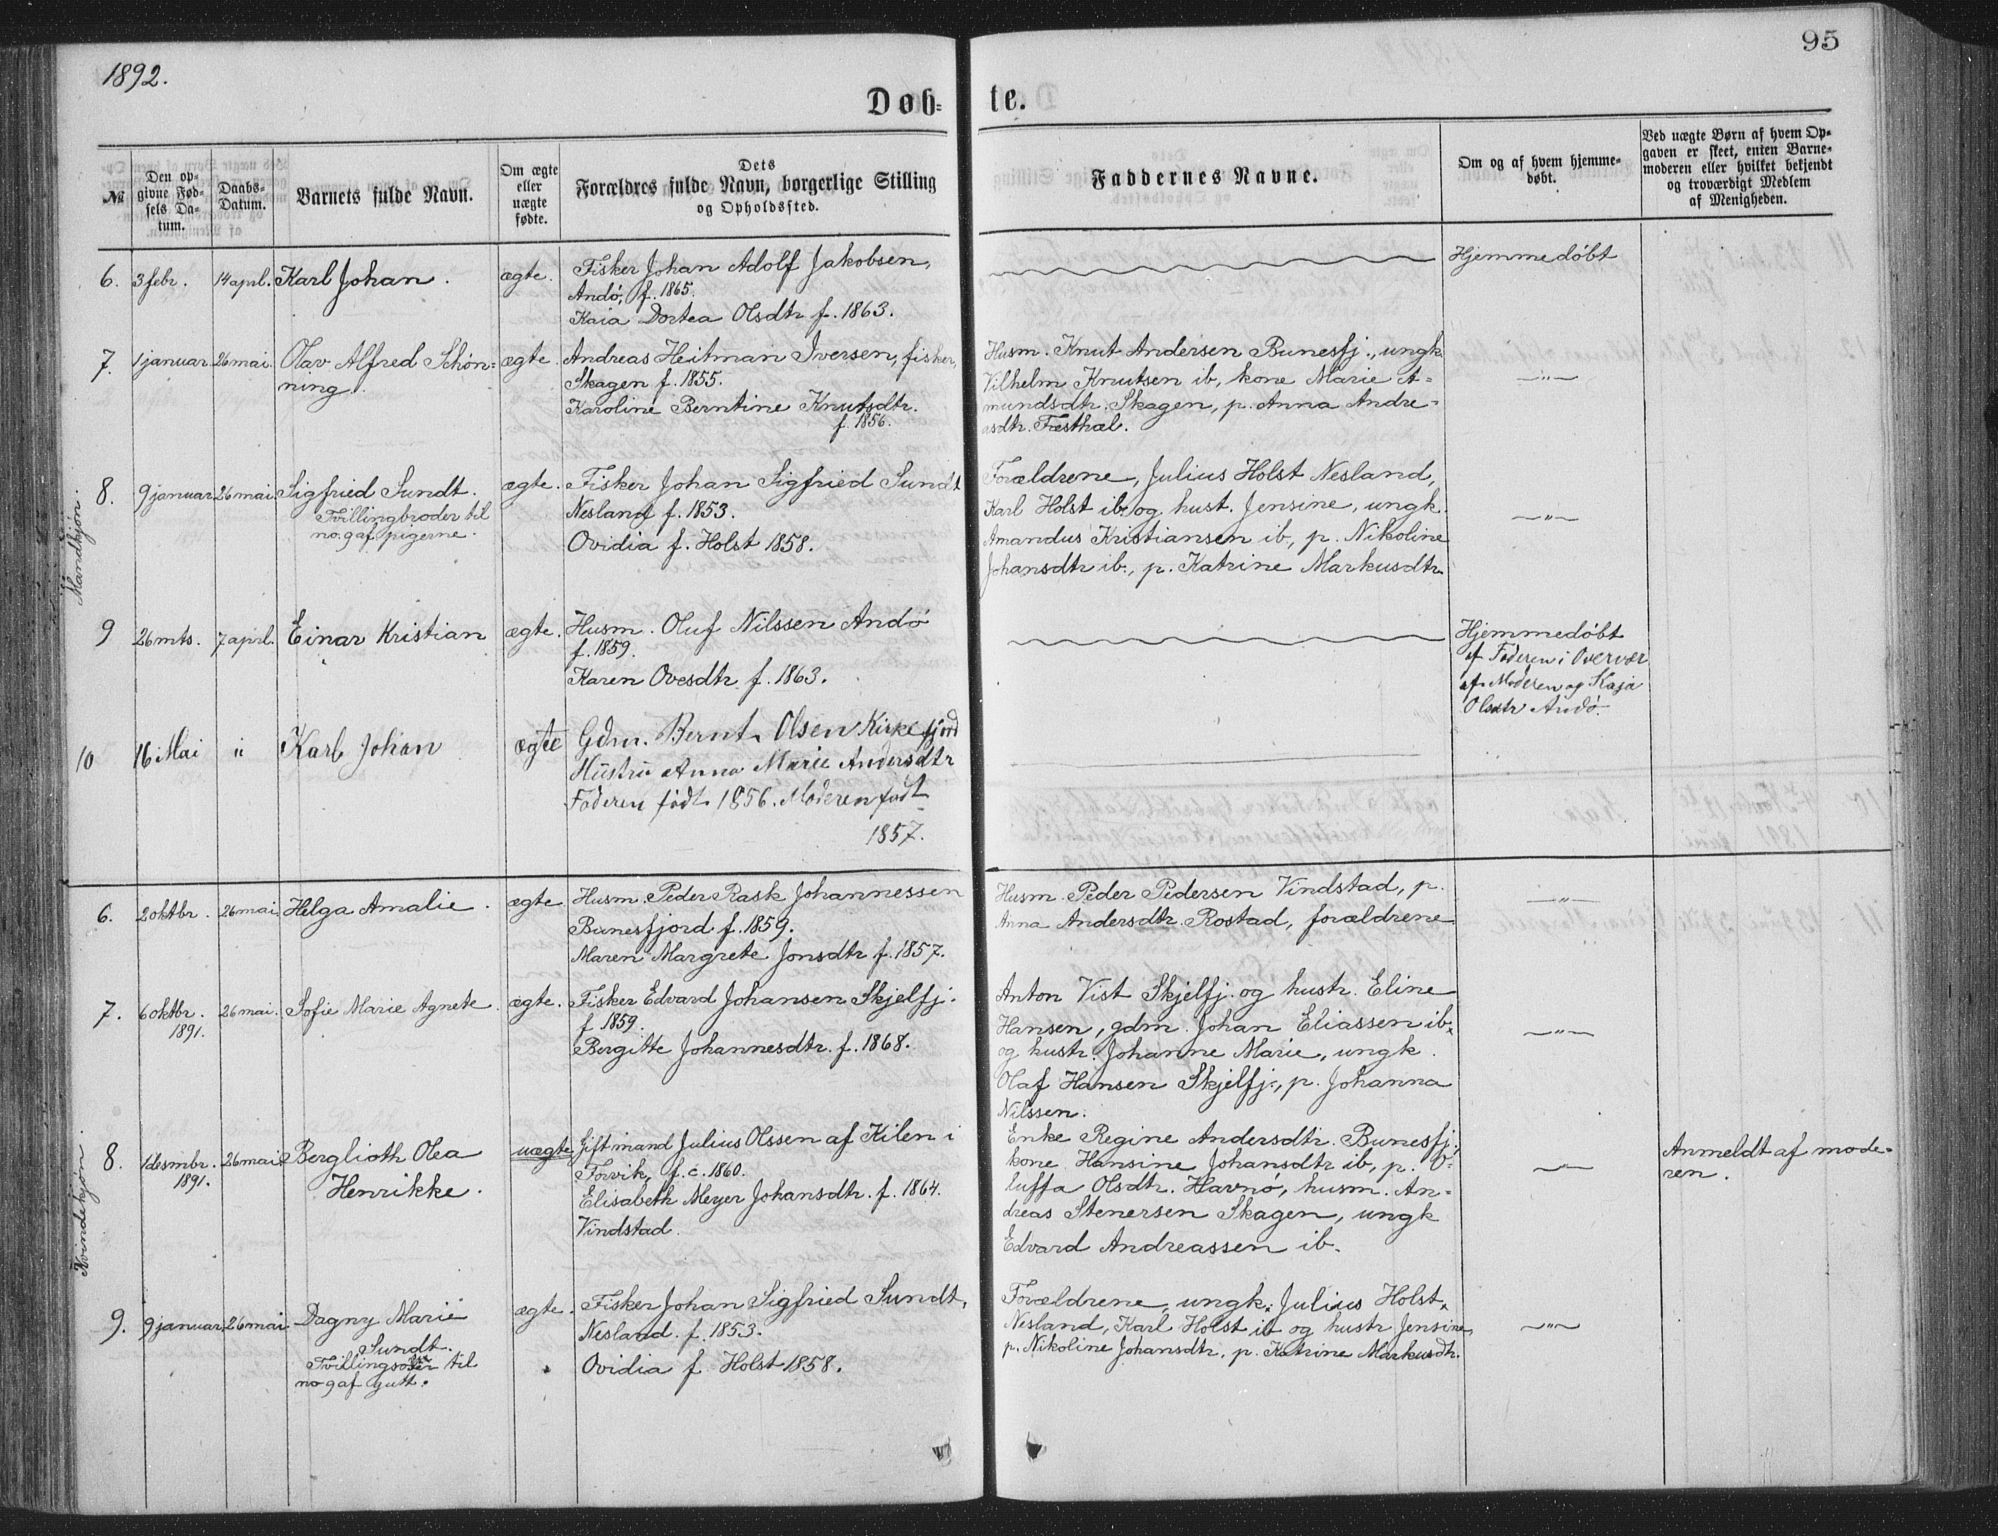 1892.
95
Døb-
te.
No
Den op-
givne Fød-
sels Da-
tum.
Daabs-
Datum.
Barnets fulde Navn.
Om ægte
eller
uægte
fødte.
Dets
Forældres fulde Navn, borgerlige Stilling
og Opholdssted.
Faddernes Navne.
Om og af hvem hjemme-
døbt.
Ved uægte Børn af hvem Op-
gaven er skeet, enten Barne-
moderen eller hvilket bekjendt
og troværdigt Medlem
af Menigheden.
Mandkjøn.
6. 3 febr. 14 aprl. Karl Johan. ægte. Fisker Johan Adolf Jakobsen,
Andø, f. 1865.
Kaia Dortea Olsdtr f. 1863.
Hjemmedøbt
7. 1 januar 26 mai. Olav Alfred Schøn-
ning.
ægte. Andreas Heitman Iversen, fisker,
Skagen f. 1855.
Karoline Berntine Knutsdtr.
f. 1856.
Husm. Knut Andersen Bunesfj., ungk
Vilhelm Knutsen ib, kone Marie A-
mundsdtr. Skagen, p. Anna Andre-
asdtr. Fæsthæl.
—"—
8. 9 januar 26 mai Sigfried Sundt.
Tvillingbroder til
no. 9 af pigerne.
ægte. Fisker Johan Sigfried Sundt
Nesland f. 1853.
Ovidia f. Holst 1858.
Forældrene, Julius Holst Nesland,
Karl Holst ib. og hust. Jensine, ungk.
Amandus Kristiansen ib, p. Nikoline
Johansdtr ib., p. Katrine Markusdtr.
—"—
9 26 mts. 7 aprl. Einar Kristian ægte. Husm. Oluf Nilssen Andø
f. 1859.
Karen Ovesdtr f. 1863.
Hjemmedøbt
af Faderen i Overvær
af Moderen og Kaja
Olsdtr Andø.
10 16 Mai " Karl Johan ægte Gdm. Bernt Olsen Kirkefjord
Hustru Anna Marie Andersdtr
Faderen født 1856. Moderen født
1857.
Kvindekjøn.
6. 2 oktbr. 26 mai Helga Amalie. ægte. Husm. Peder Rask Johannessen
Bunesfjord f. 1859.
Maren Margrete Jonsdtr f. 1857.
Husm. Peder Pedersen Vindstad, p.
Anna Andersdtr. Rostad, forældrene
—"—
7. 6 oktbr.
1891.
26 mai. Sofie Marie Agnete. ægte. Fisker Edvard Johansen Skjelfj.
f 1859.
Bergitte Johannesdtr. f. 1868.
Anton Vist Skjelfj. og hustr. Eline
Hansen, gdm. Johan Eliassen ib.
og hustr. Johanne Marie, ungk.
Olaf Hansen Skjelfj., p. Johanna
Nilssen.
—"—
8. 1 desmbr.
1891.
26 mai. Berglioth Olea
Henrikke.
uægte Gift mand Julius Olssen af Kilen i
Forvik, f. c. 1860.
Elisabeth Meyer Johansdtr. f. 1864.
Vindstad.
Enke Regine Andersdtr. Bunesfj.
kone Hansine Johansdtr ib, p. O-
luffa Olsdtr. Havnø, husm. An-
dreas Stenersen Skagen, ungk
Edvard Andreassen ib.
—"—
Anmeldt af mode-
ren.
9. 9 januar. 26 mai Dagny Marie
Sundt.
Tvillingsøster til
no 9 af gutt.
ægte. Fisker Johan Sigfried Sundt,
Nesland. f. 1853.
Ovidia f Holst 1858.
Forældrene, ungk. Julius Holst,
Nesland, Karl Holst ib og hustr Jensine,
p. Nikoline Johansdtr, p. Katrine Markusdtr.
—"—